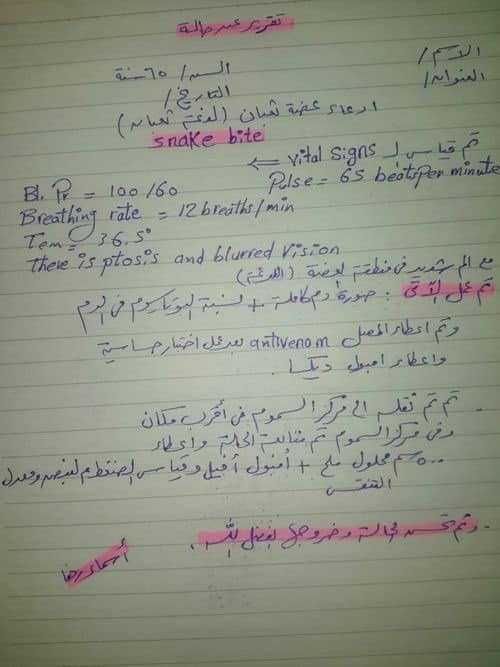 تقرير عن حالة
الاسم /
السن / ٦٥ سنة
العنوان /
التاريخ /
ادعاء عضة ثعبان (لدغة ثعبان)
snake bite
تم قياس ال vital signs ⇐
Bl. Pr = 100/60
Pulse = 65 beats per minute
Breathing rate = 12 breaths/min
Tem = 36.5°
there is ptosis and blurred vision
مع الم شديد في منطقة العضة (اللدغة)
تم عمل الآتى : صورة دم كاملة + نسبة البوتاسيوم في الدم
وتم اعطاء المصل antivenom بعد عمل اختبار حساسية
واعطاء امبول ديكسا .
- ثم تم نقله الى مركز السموم في أقرب مكان
وفي مركز السموم تم متابعة الحالة واعطاء
٥٠٠ سم محلول ملح + أمبول أفيل وقياس الضغط والنبض ومعدل
التنفس
- وتم تحسن الحالة وخروجها بفضل الله .
أسماء رضا